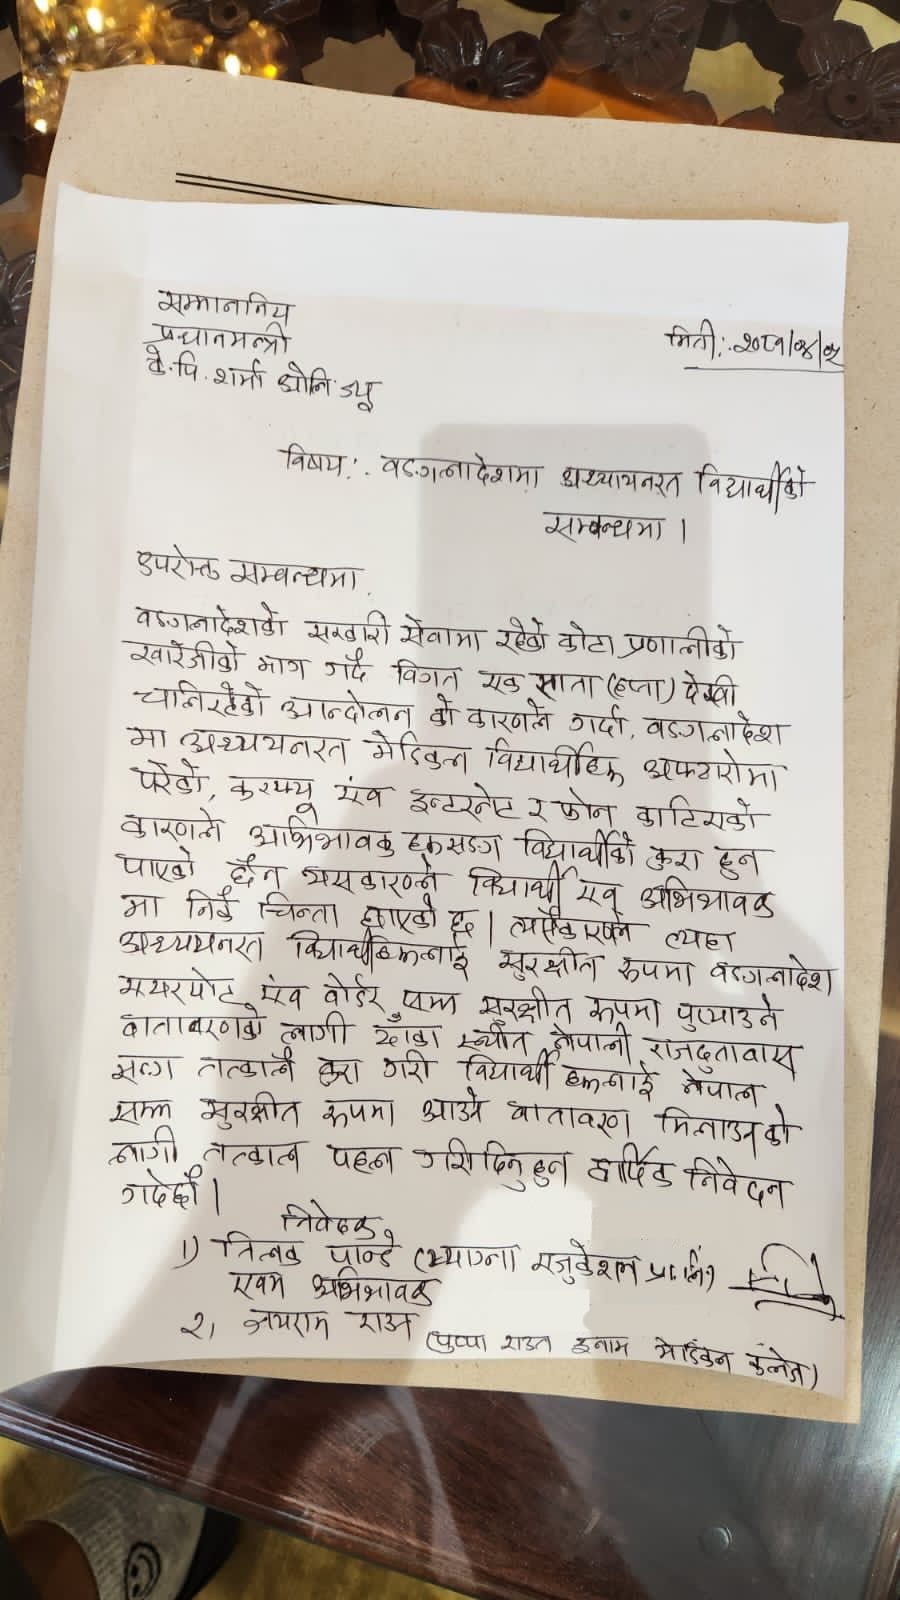 सम्माननिय
प्रधानमन्त्री
के.पि.शर्मा ओलि ज्यू
मिती:.२०८१/०४/०५
विषय:. वङगलादेशमा अध्यायनरत विद्यार्थीको
सम्बन्धमा ।
उपरोक्त सम्बन्धमा,
वङगलादेशको सरकारी सेवामा रहेको कोटा प्रणालीको
खारेजीको माग गर्दै विगत एक साता (हप्ता) देखी
चालिरहेको आन्दोलन को कारणले गर्दा, वङगलादेश
मा अध्ययनरत मेडिकल विद्यार्थीहरू अफ्टारोमा
परेको, करफ्यू एंव इन्टरनेट र फोन काटिएको
कारणले अभिभावक हरूसङग विद्यार्थीको कुरा हुन
पाएको छैन यसकारणले विद्यार्थी एंव अभिभावक
मा निकै चिन्ता छाएको छ । त्यसैकारणले त्यहा
अध्ययनरत विद्यार्थीहरूलाई सुरक्षीत रूपमा वङगलादेश
एयरपोट एंव वोर्डर सम्म सुरक्षीत रूपमा पुऱ्याउने
वातावरणको लागी ढाँका स्थीत नेपाली राजदुतावास
सङग तत्कालै कुरा गरी विद्यार्थी हरूलाई नेपाल
सम्म सुरक्षीत रूपमा आउने वातावरण मिलाउनको
लागी तत्काल पहल गरिदिनुहुन हार्दिक निवेदन
गर्दछौं ।
निवेदक,
१) तिलक पान्डे (म्याग्ना एजुकेशन प्रा.लि)
एवम अभिभावक
२, जयराम राउत (पुष्पा राउत इनाम मेडिकल कलेज)